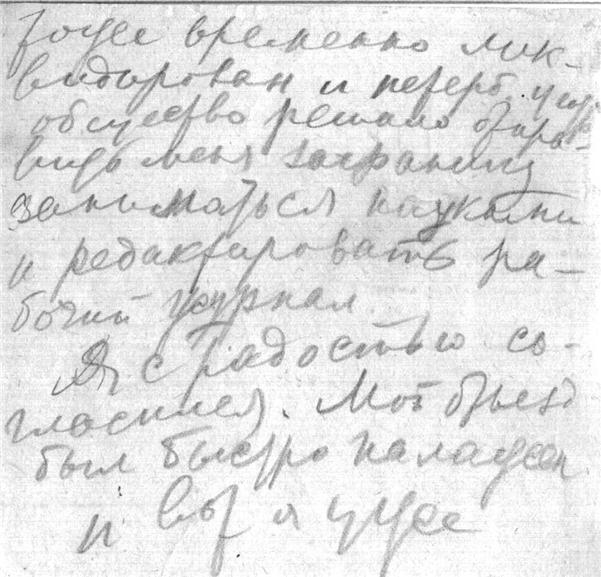 тоже временно лик-
видирован и петерб.
общество решило отпра-
вить меня заграницу
заниматься науками
и редактировать ра-
бочий журнал.
Я с радостью со-
гласился. Мой отъезд
был быстро налажен
и вот я уже